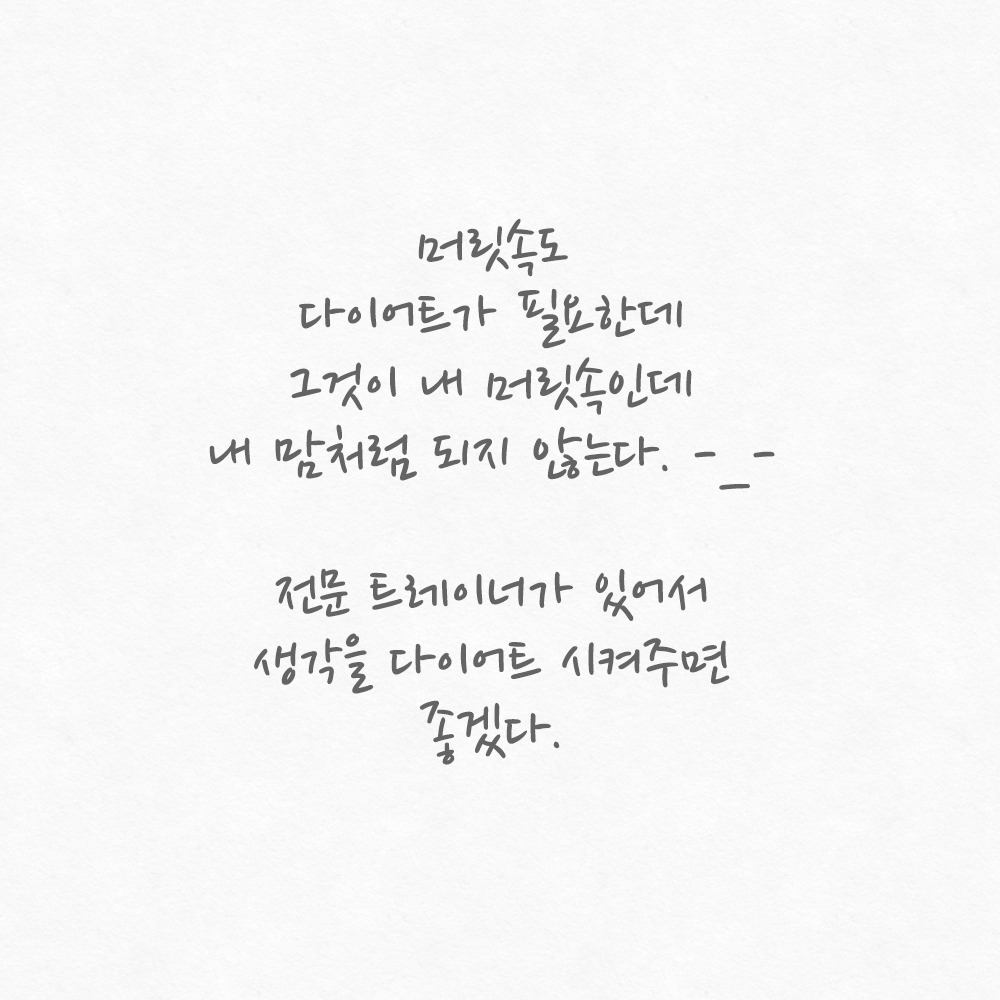 머릿속도
다이어트가 필요한데
그것이 내 머릿속인데
내 맘처럼 되지 않는다. -_-
전문 트레이너가 있어서
생각을 다이어트 시켜주면
좋겠다.